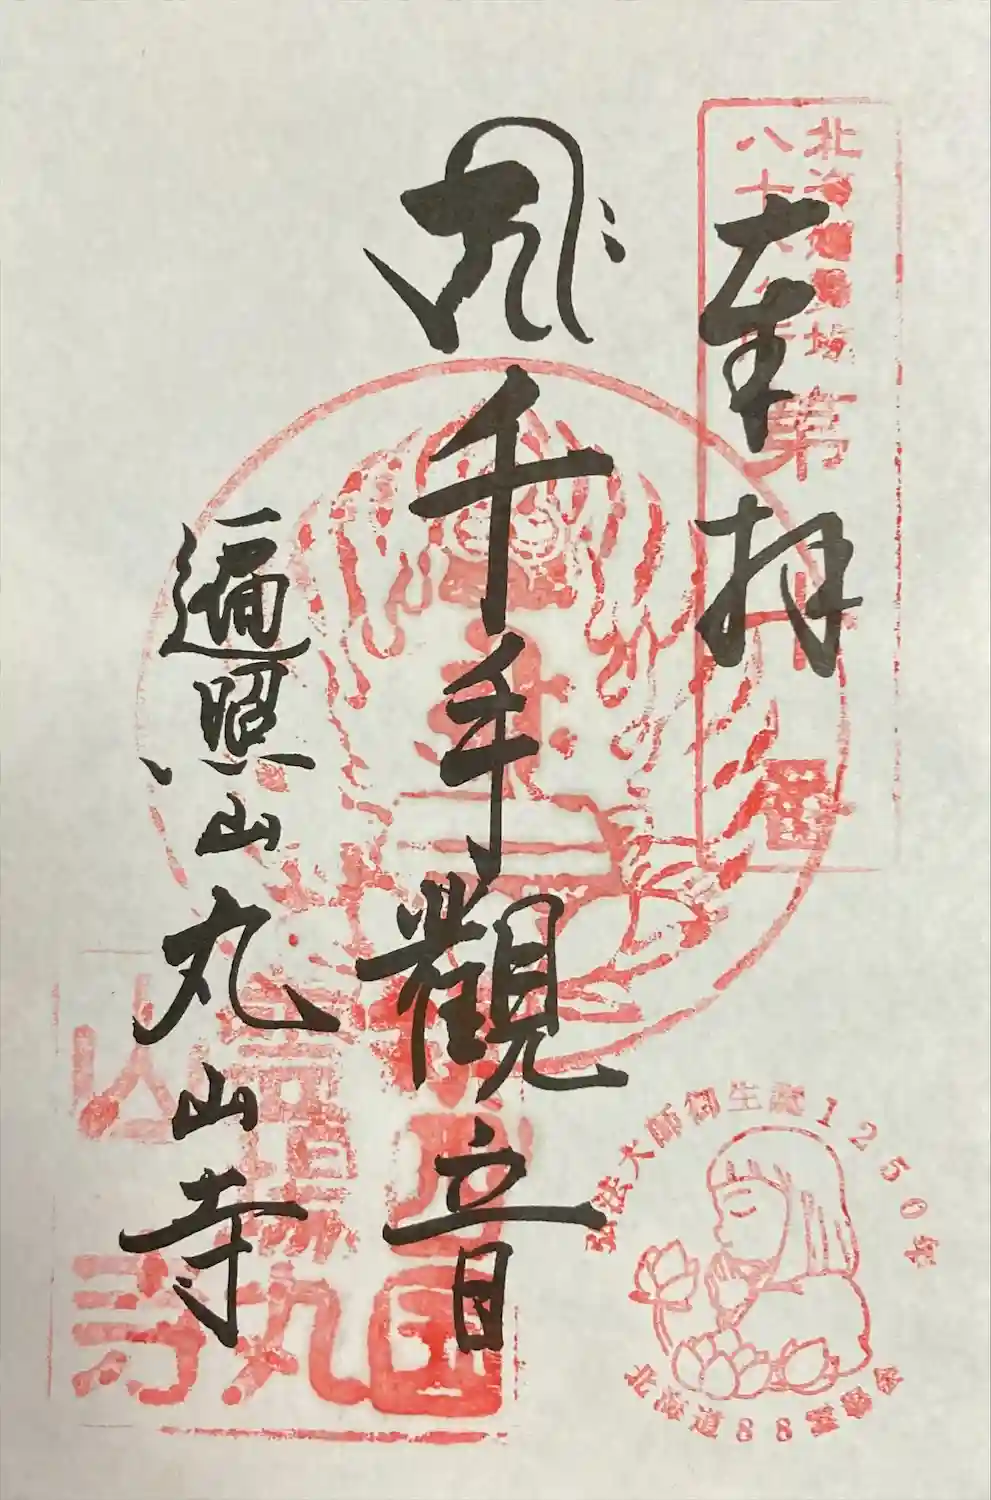 奉拝
北海道霊場
八十八ヶ所
第
番
千手觀音
遍照山
丸山寺
弘法大師御生誕1250年
北海道88霊場会